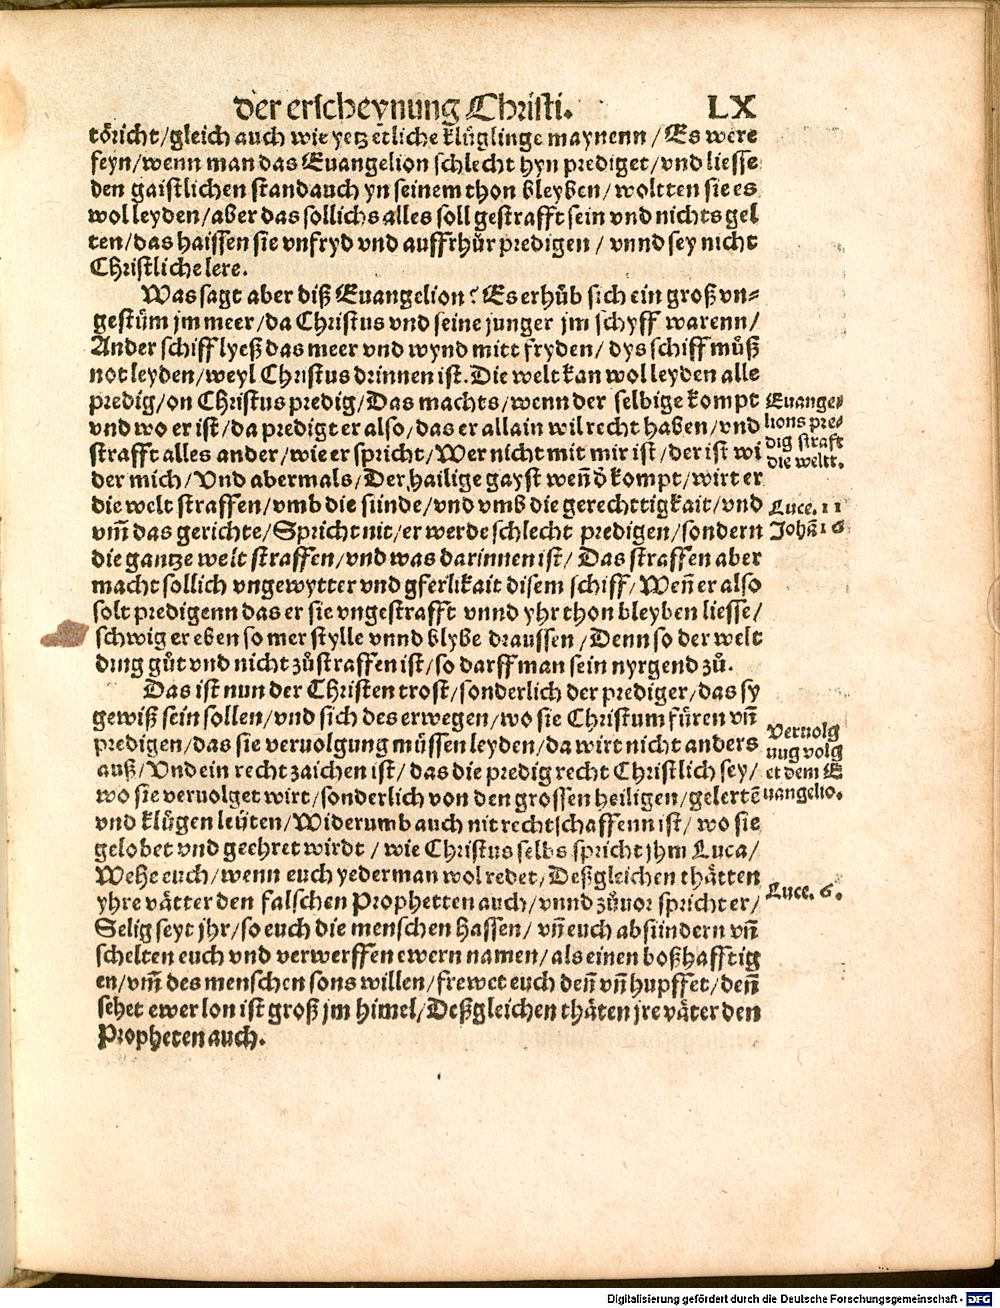 der erscheynung Christi. LX
tőricht/gleich auch wie yetz etliche klűglinge maynenn/Es were
feyn/wenn man das Euangelion schlecht hyn prediget/vnd liesse
den gaistlichen stand auch yn seinem thon bleyben/woltten sie es
wol leyden/aber das sollichs alles soll gestrafft sein vnd nichts gel
ten/das haissen sie vnfryd vnd auffrhůr predigen/vnnd sey nicht
Christliche lere.
Was sagt aber diß Euangelion? Es erhůb sich ein groß vn⸗
gestüm jm meer/da Christus vnd seine junger jm schyff warenn/
Ander schiff lyeß das meer vnd wynd mitt fryden/dys schiff můß
not leyden/weyl Christus drinnen ist. Die welt kan wol leyden alle
predig/on Christus predig/Das machts/wenn der selbige kompt
vnd wo er ist/da predigt er also/das er allain wil recht haben/vnd
strafft alles ander/wie er spricht/Wer nicht mit mir ist/der ist wi
der mich/Vnd abermals/Der hailige gayst weñ d̄ kompt/wirt er
die welt straffen/vmb die sünde/vnd vmb die gerechttigkait/vnd
vm̄ das gerichte/Spricht nit/er werde schlecht predigen/sondern
die gantze welt straffen/vnd was darinnen ist/Das straffen aber
macht sollich vngewytter vnd gferlikait disem schiff/Weñ er also
solt predigenn das er sie vngestrafft vnnd yhr thon bleyben liesse/
schwig er eben so mer stylle vnnd blybe draussen/Denn so der welt
ding gůt vnd nicht zůstraffen ist/so darff man sein nyrgend zů.
Das ist nun der Christen trost/sonderlich der prediger/das sy
gewiß sein sollen/vnd sich des erwegen/wo sie Christum fůren vñ
predigen/das sie veruolgung müssen leyden/da wirt nicht anders
auß/Vnd ein recht zaichen ist/das die predig recht Christlich sey/
wo sie veruolget wirt/sonderlich von den grossen heiligen/gelertē
vnd klůgen leüten/Widerumb auch nit rechtschaffenn ist/wo sie
gelobet vnd geehret wirdt/wie Christus selbs spricht jhm Luca/
Wehe euch/wenn euch yederman wol redet/Deßgleichen thätten
yhre vätter den falschen Prophetten auch/vnnd zůuor spricht er/
Selig seyt jhr/so euch die menschen hassen/vñ euch absündern vñ
schelten euch vnd verwerffen ewern namen/als einen boßhafftig
en/vm̄ des menschen sons willen/frewet euch deñ vñ hupffet/deñ
sehet ewer lon ist groß jm himel/Deßgleichen thäten jre väter den
Propheten auch.
Euange⸗
lions pre⸗
dig straft
die weltt.
Luce. 11
Johā 16
Veruolg
ung volg
et dem E
uangelio.
Luce. 6.
Digitalisierung gefördert durch die Deutsche Forschungsgemeinschaft - DFG